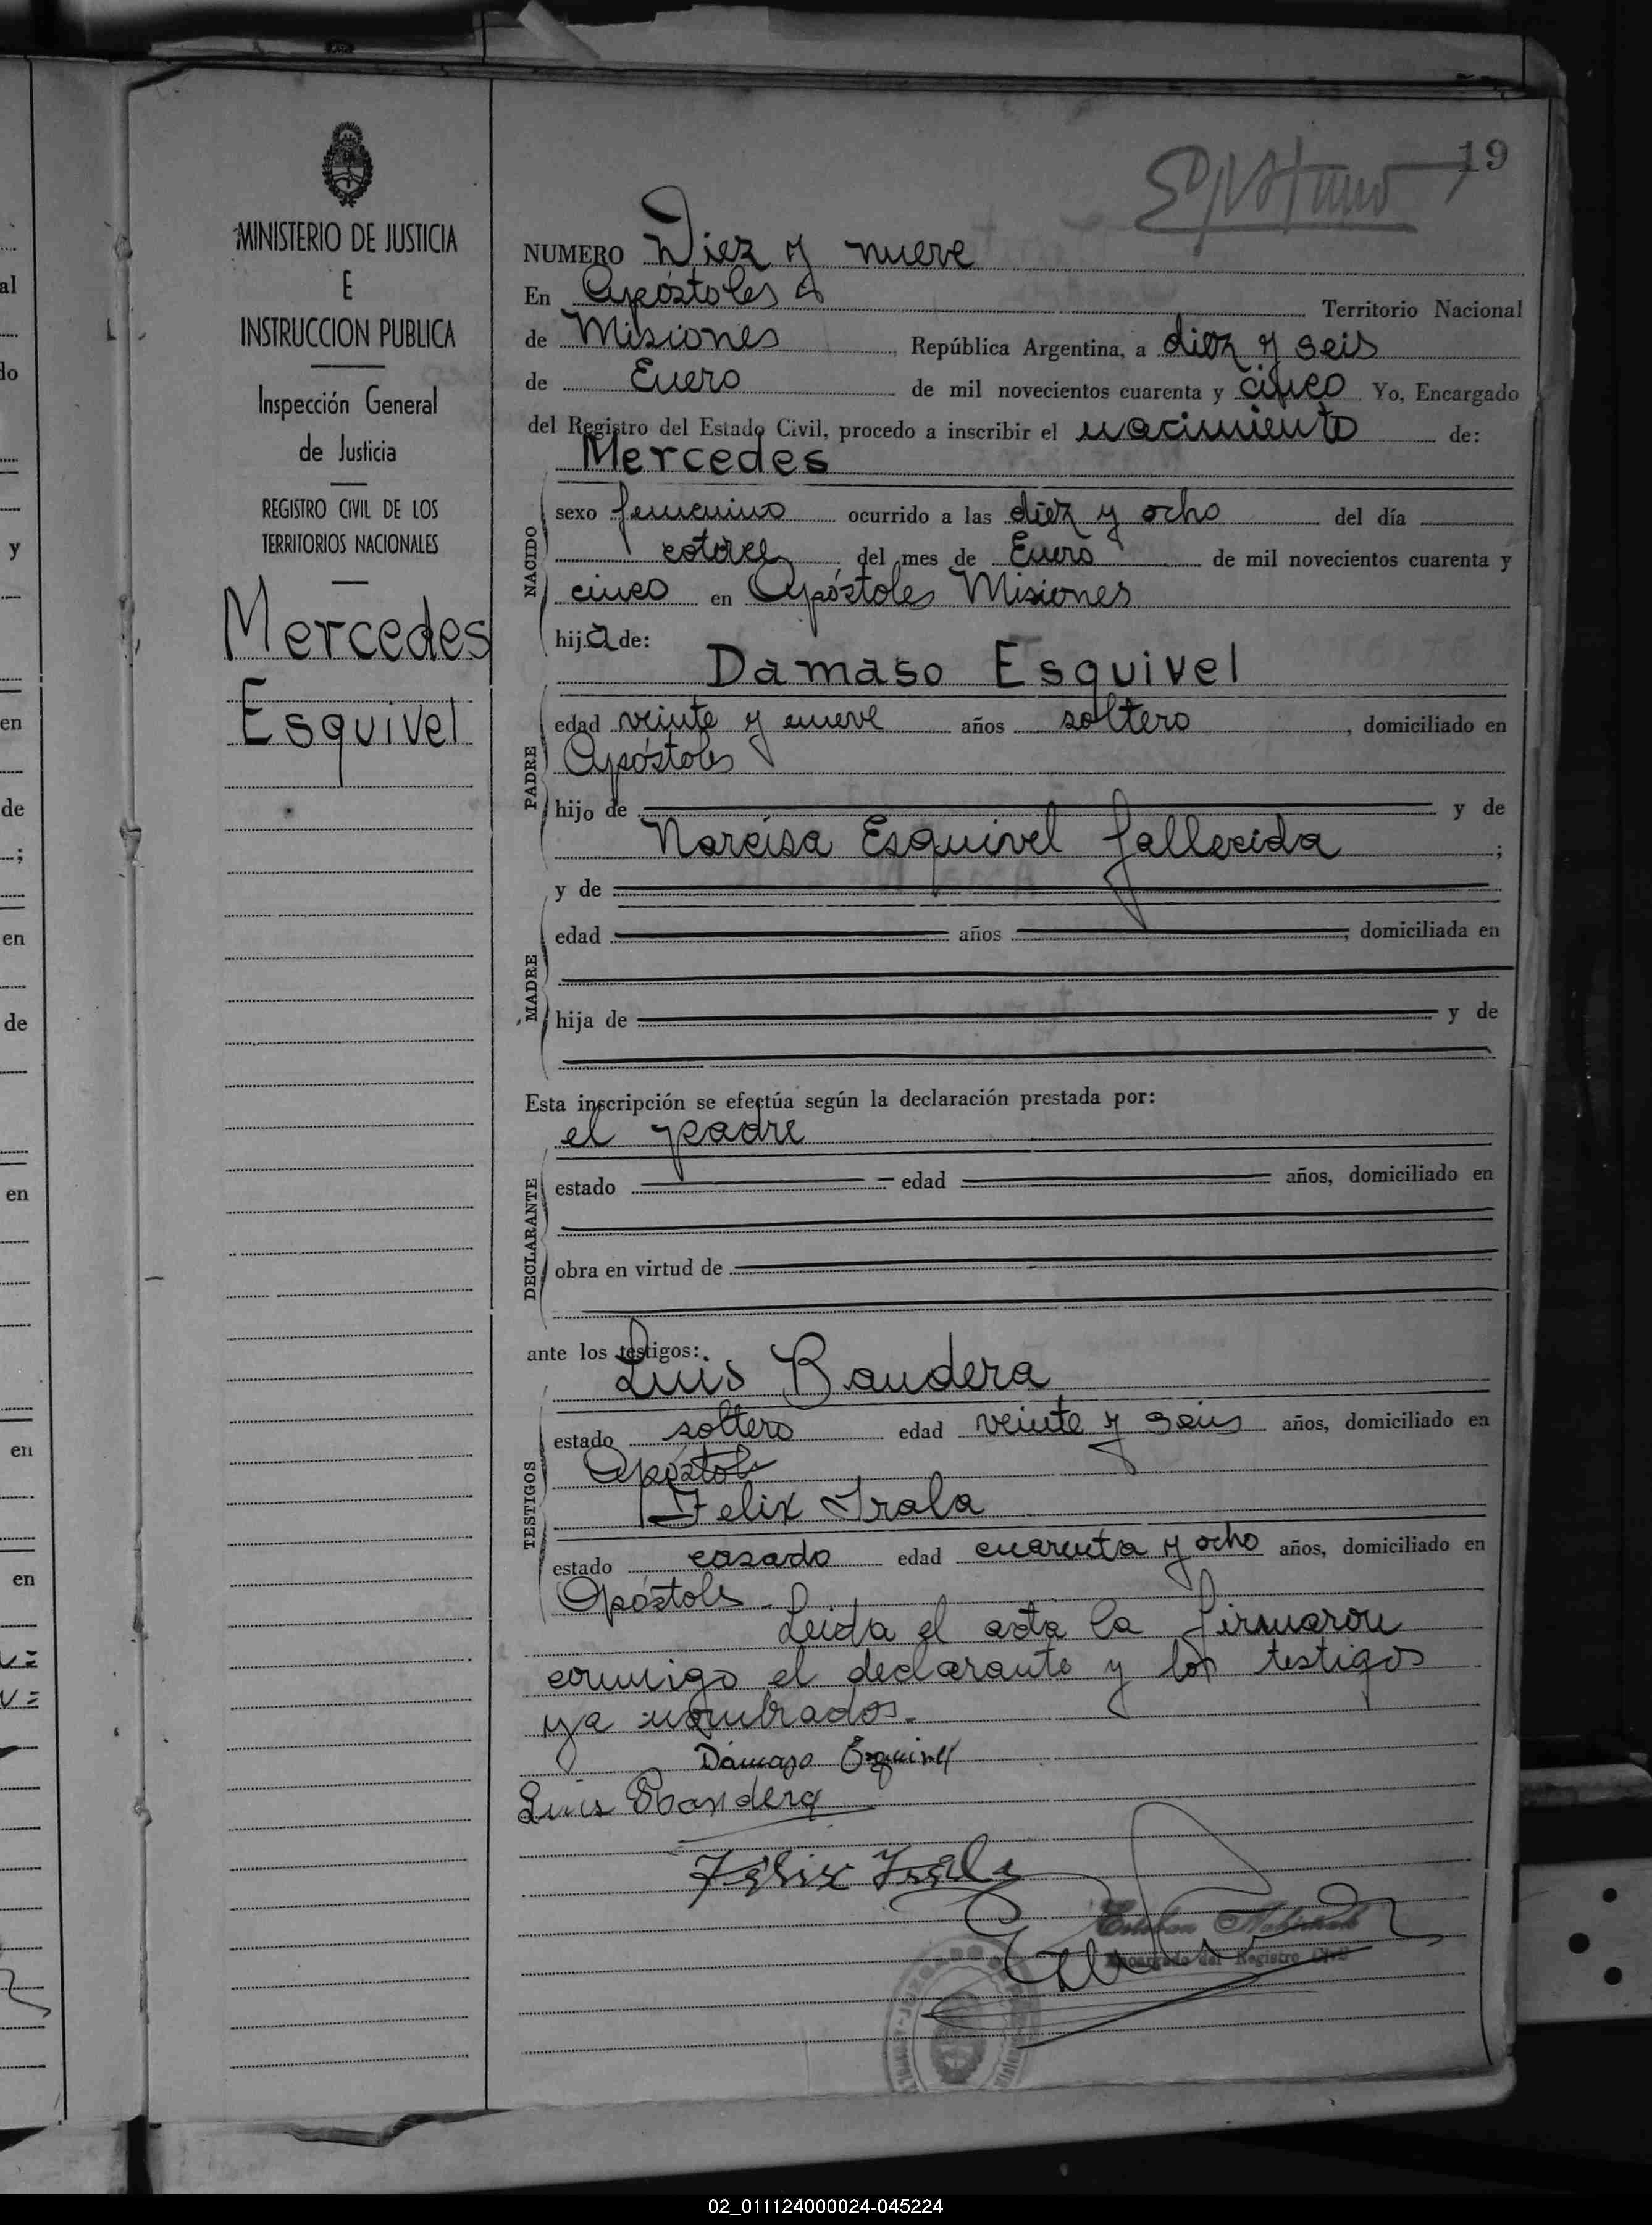 19
MINISTERIO DE JUSTICIA
E
INSTRUCCION PUBLICA
Inspección General
de Justicia
REGISTRO CIVIL DE LOS
TERRITORIOS NACIONALES
Mercedes
Esquivel
NUMERO Diez y nueve
En Apóstoles Territorio Nacional
de Misiones República Argentina, a diez y seis
de Enero de mil novecientos cuarenta y cinco Yo, Encargado
del Registro del Estado Civil, procedo a inscribir el nacimiento de:
Mercedes
NACIDO
sexo femenino ocurrido a las diez y ocho del día
catorce del mes de Enero de mil novecientos cuarenta y
cinco en Apóstoles Misiones
hija de:
Damaso Esquivel
PADRE
edad veinte y nueve años soltero, domiciliado en
Apóstoles
hijo de y de
Narcisa Esquivel fallecida ;
y de
MADRE
edad años ; domiciliada en
hija de y de
Esta inscripción se efectúa según la declaración prestada por:
el padre
DECLARANTE
estado edad años, domiciliado en
obra en virtud de
ante los testigos:
Luis Bandera
TESTIGOS
estado soltero edad veinte y seis años, domiciliado en
Apóstols
Felix Irala
estado casado edad cuarenta y ocho años, domiciliado en
Apóstols. Leida el acta la firmaron
conmigo el declarante y los testigos
ya nombrados.
Dámaso Esquivel
Luis Bandera
Félix Irala
Esteban
Encargado del Registro Civil
02_011124000024-045224